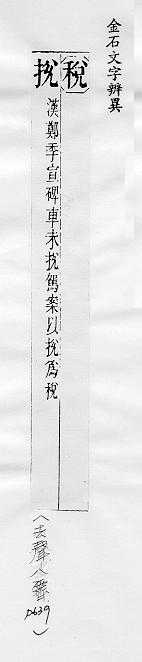 金石文字辨異
(稅)
挩
漢鄭季宣碑車未挩駕案以挩爲稅
(去聲八霽 P639)